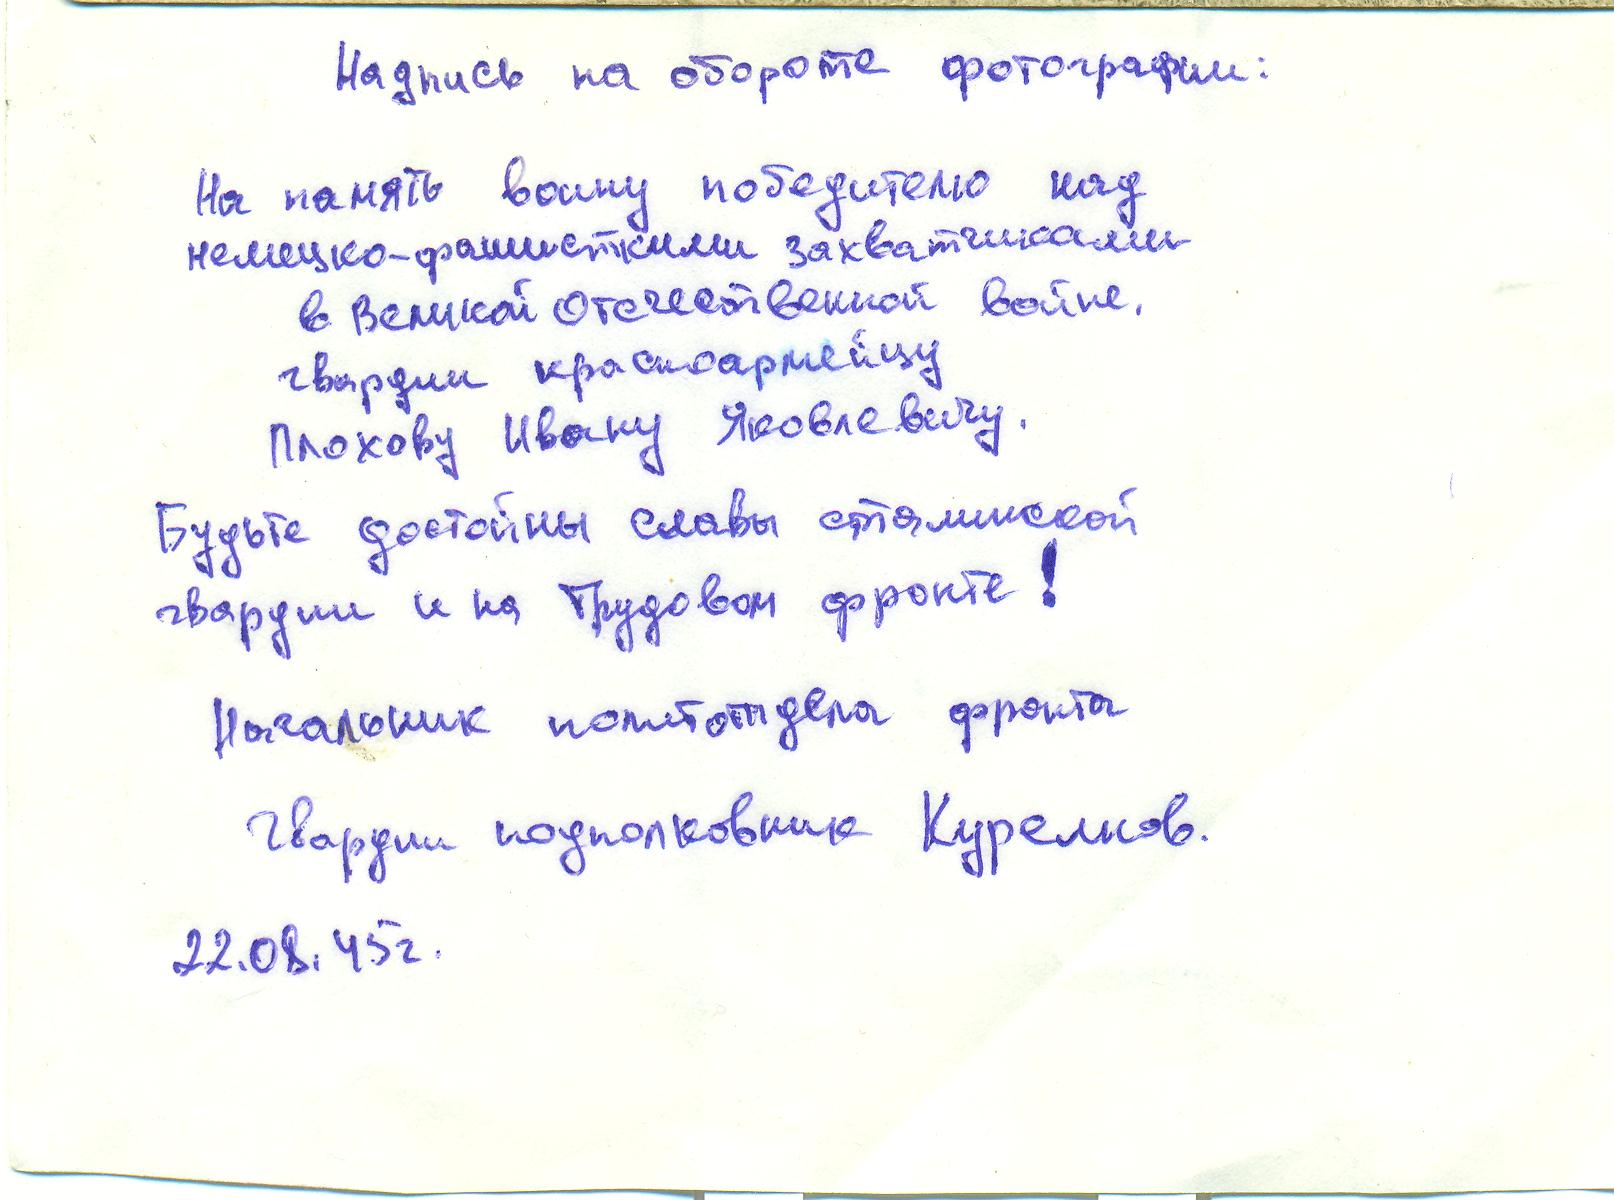 Надпись на обороте фотографии:
На память воину победителю над
немецко-фашисткими захватчиками
в Великой Отечественной войне,
гвардии красноармейцу
Плохову Ивану Яковлевичу.
Будьте достойны славы сталинской
гвардии и на Трудовом фронте!
Начальник политотдела фронта
Гвардии подполковник Курелков.
22.08.45г.